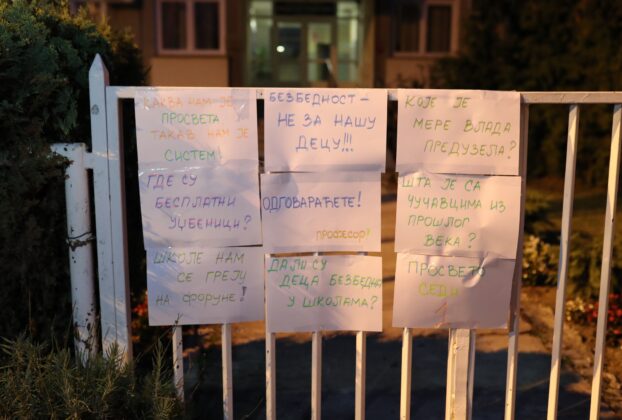 КАКВА НАМ ЈЕ
ПРОСВЕТА
ТАКАВ НАМ ЈЕ
СИСТЕМ!
БЕЗБЕДНОСТ -
НЕ ЗА НАШУ
ДЕЦУ!!!
КОЈЕ ЈЕ
МЕРЕ ВЛАДА
ПРЕДУЗЕЛА?
ГДЕ СУ
БЕСПЛАТНИ
УЏБЕНИЦИ?
ОДГОВАРАЋЕТЕ!
ПРОФЕСОР!
ШТА ЈЕ СА
ЧУЧАВЦИМА ИЗ
ПРОШЛОГ
ВЕКА?
ШКОЛЕ НАМ
СЕ ГРЕЈУ
НА ФОРУНЕ!
ДА ЛИ СУ
ДЕЦА БЕЗБЕДНА
У ШКОЛАМА?
ПРОСВЕТО
СЕДИ
1